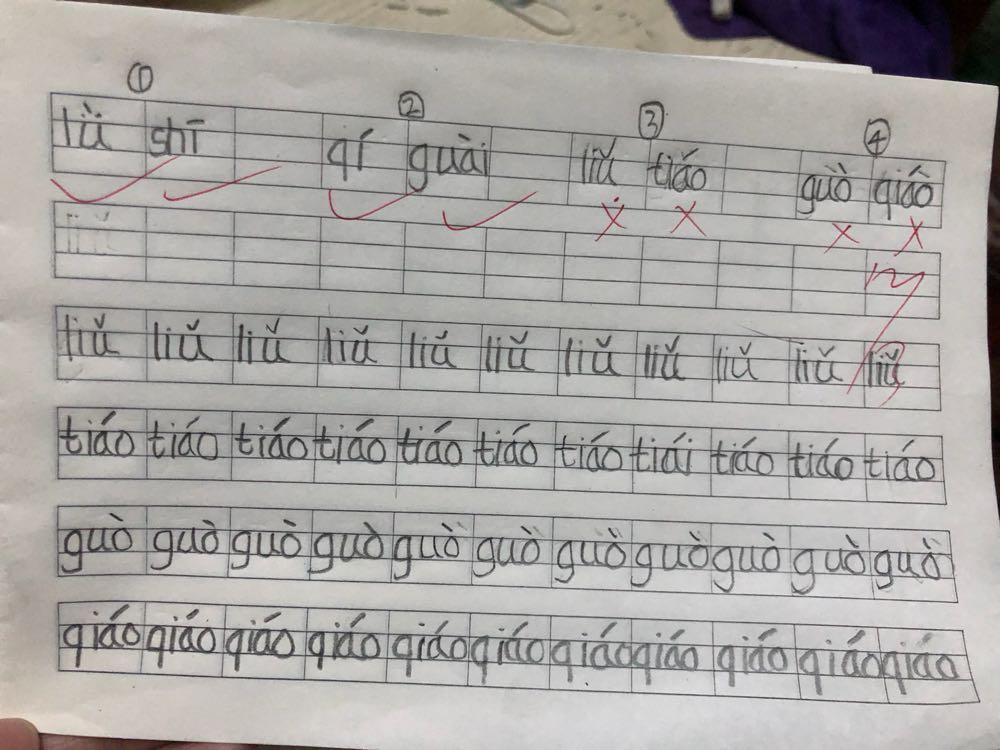 ① ② ③ ④
lǜ shī qí guài liǔ tiáo guò qiáo
liǔ liǔ liǔ liǔ liǔ liǔ liǔ liǔ liǔ liǔ liǔ
tiáo tiáo tiáo tiáo tiáo tiáo tiáo tiái tiáo tiáo tiáo
guò guò guò guò guò guò guò guò guò guò guò
qiáo qiáo qiáo qiáo qiáo qiáo qiáo qiáo qiáo qiáo qiáo